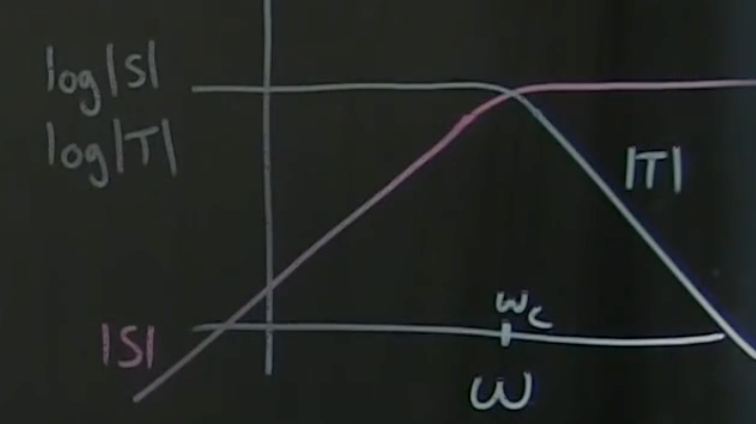 log|S|
log|T|
|T|
ω_c
|S|
ω